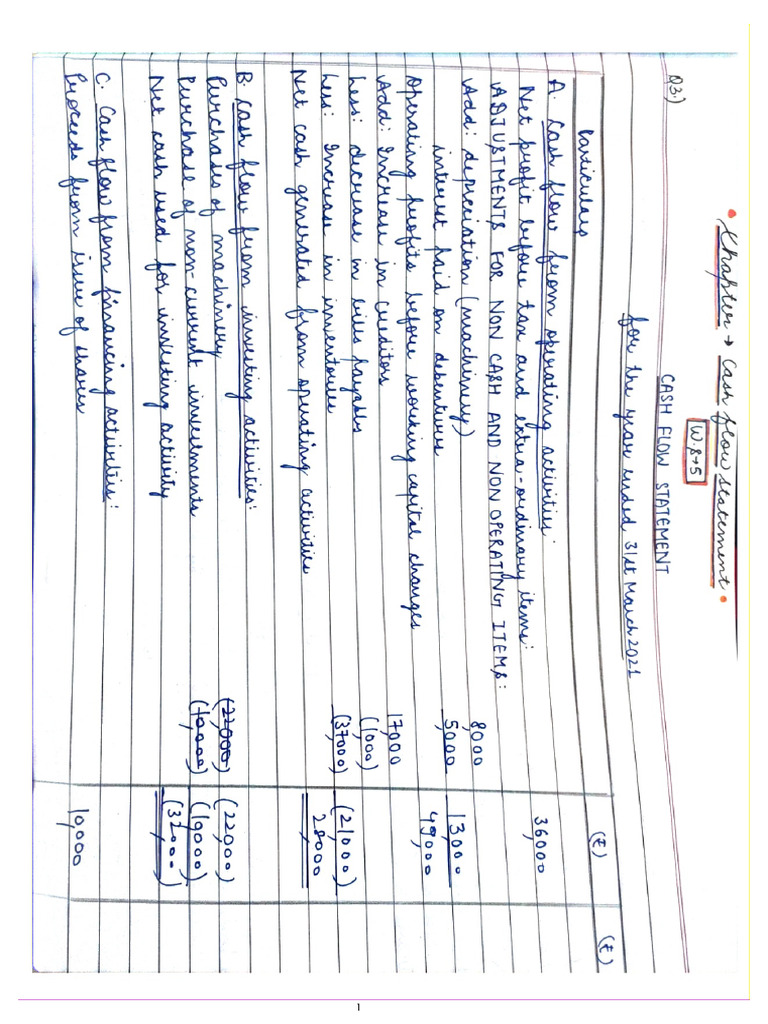 • Chapter → Cash flow statement •
W.S→5
Q3:)
CASH FLOW STATEMENT
for the year ended 31st March 2021
Particulars (₹) (₹)
A. Cash flow from operating activities:
Net profit before tax and extra-ordinary items: 36000
ADJUSTMENTS FOR NON CASH AND NON OPERATING ITEMS:
Add: depreciation (machinery) 8000
interest paid on debentures 5000 13,000
Operating profits before working capital changes 49,000
Add: Increase in creditors 17000
Less: decrease in bills payable (1000)
Less: Increase in inventories (37,000) (21,000)
Net cash generated from operating activities 28000
B. Cash flow from investing activities:
Purchases of machinery (22,000) (22,000)
Purchase of non-current investments (10,000) (10,000)
Net cash used for investing activity (32,000)
C. Cash flow from financing activities:
Proceeds from issue of shares 10,000
1